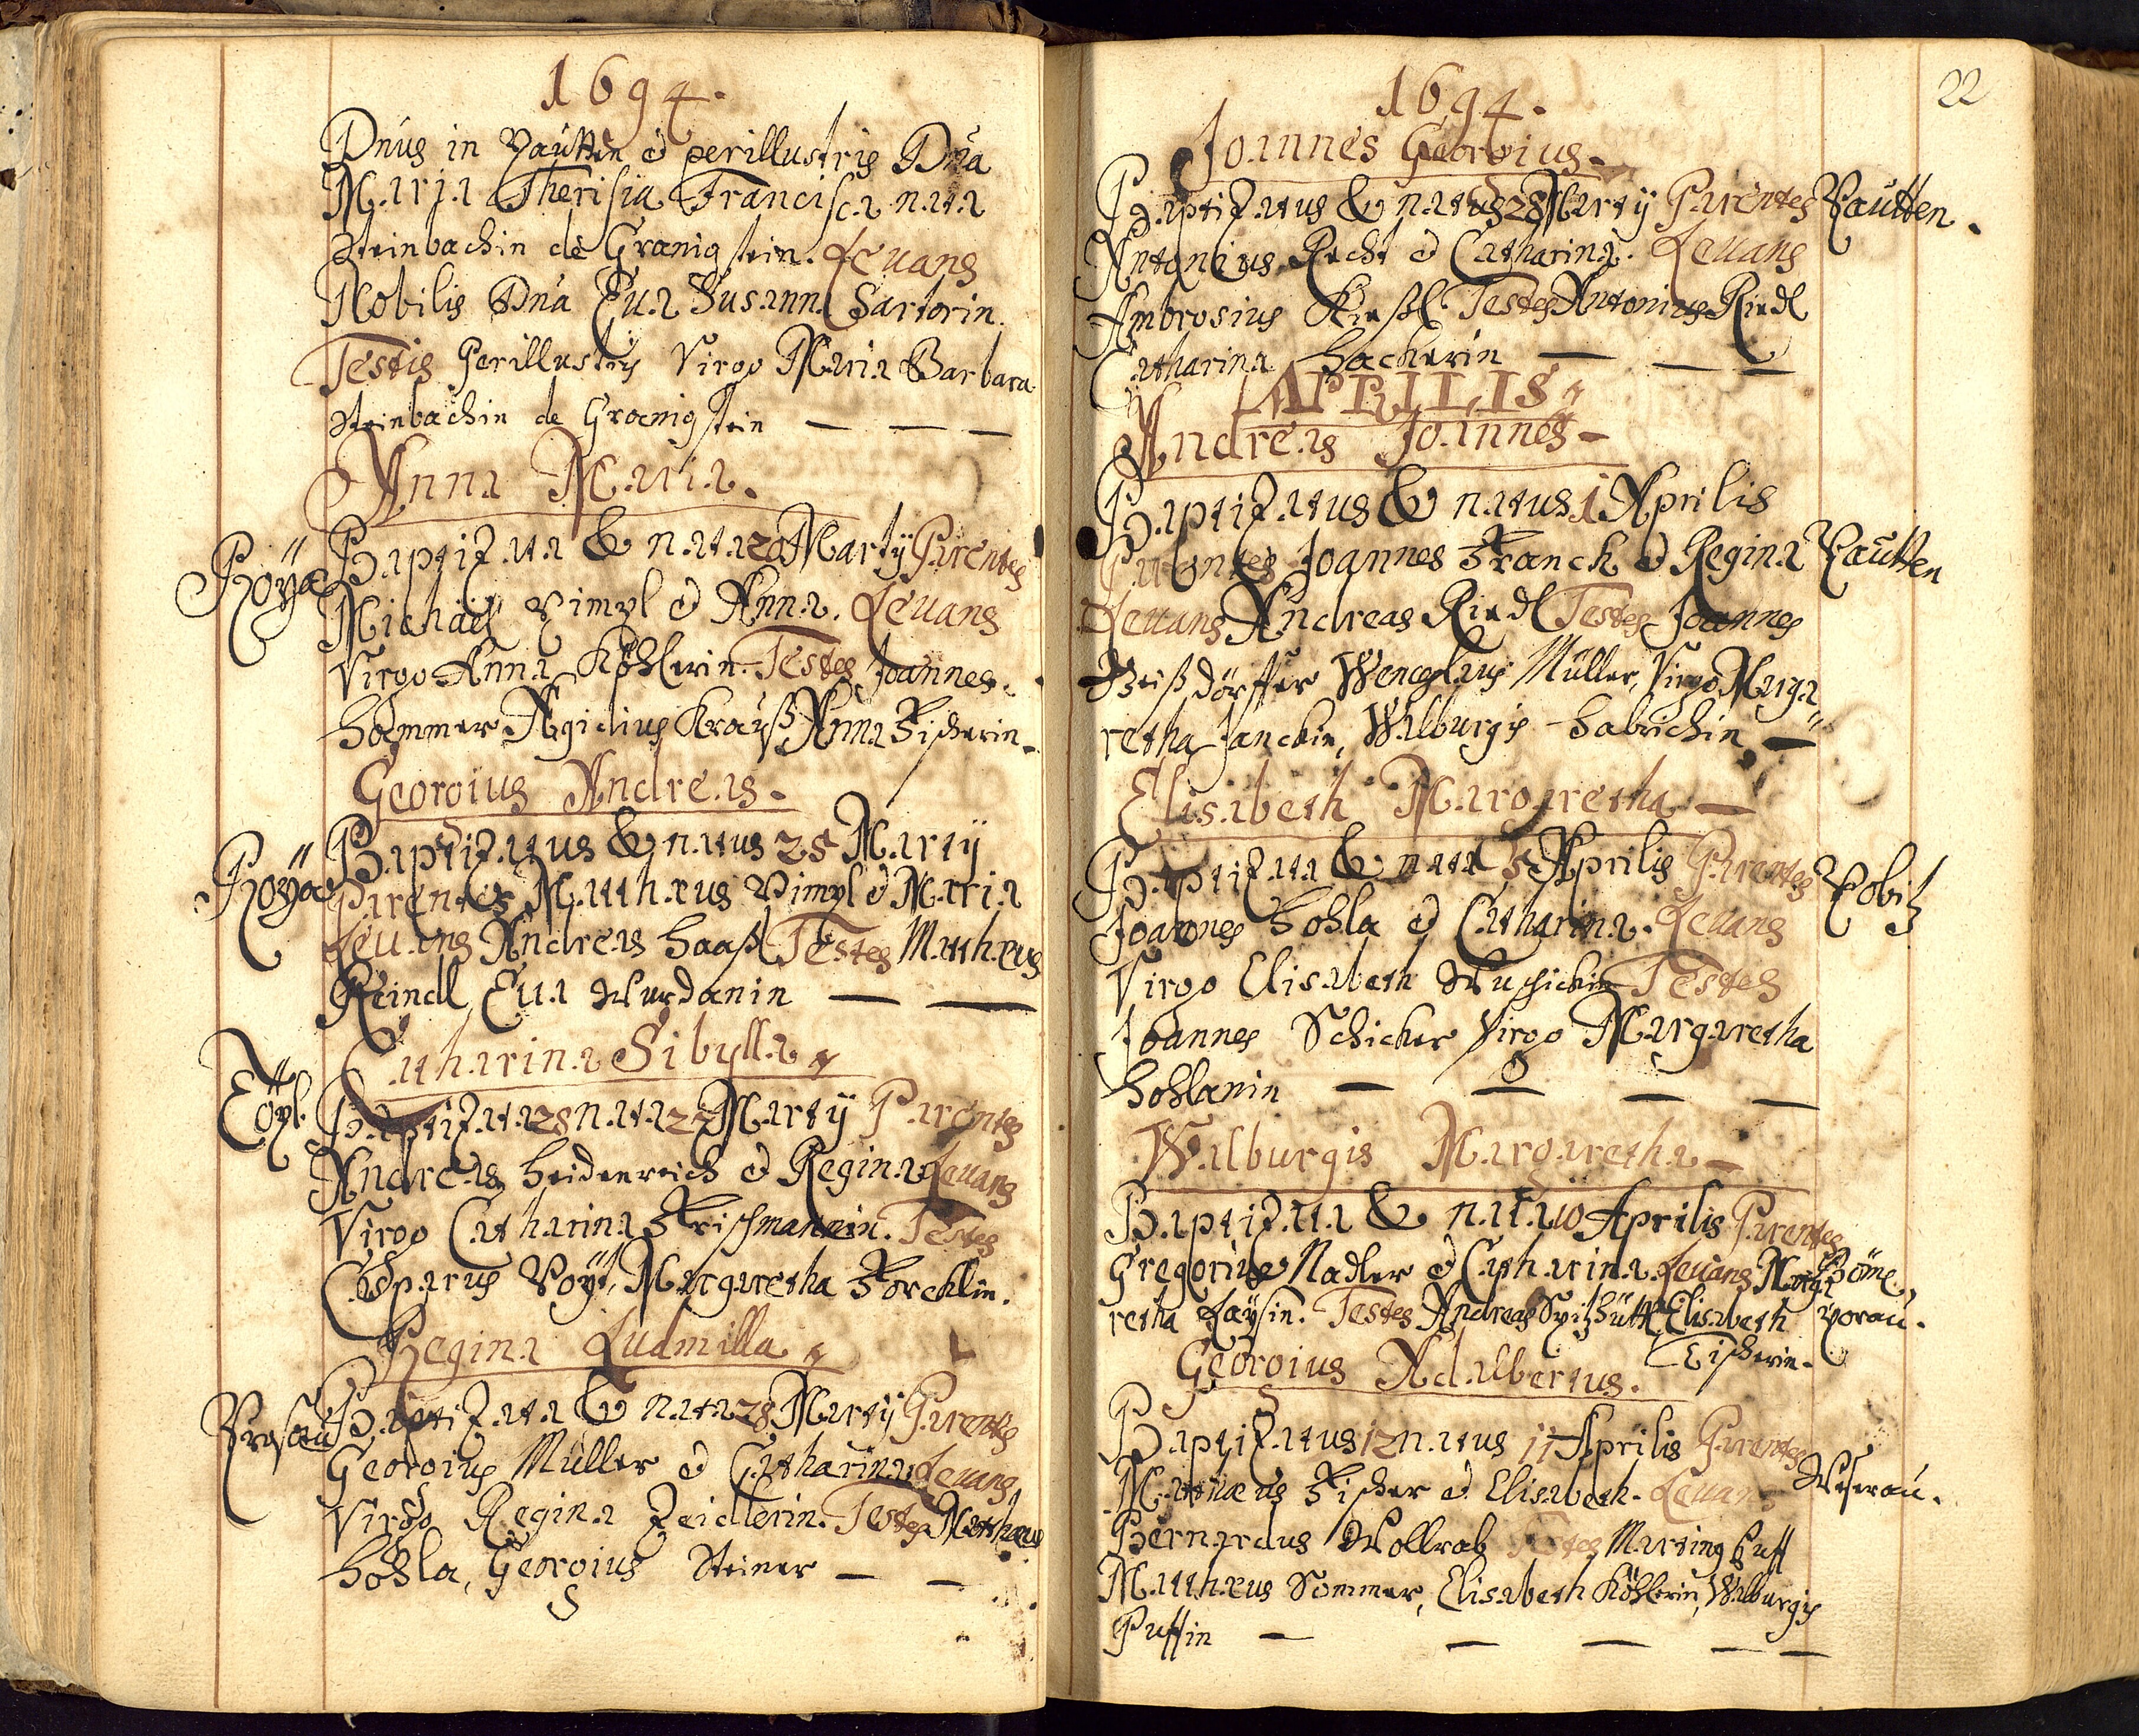 1694.
Dnus in Pautten et perillustris Dna
Maria Therisia Francisca nata
Steinbachin de Cranigstein. Levans
Nobilis Dna Eva Susann. Sartorin.
Testis Perillustris Virgo Maria Barbara
Steinbachin de Cranigstein
Anna Maria.
Royä
Baptizata & nata 20 Martÿ Parentes
Michäel Pimpl et Anna. Levans
Virgo Anna Köhlerin. Testes Joannes
Hammer Ægidius Krauß Anna Fischerin.
Georgius Andreas.
Royä
Baptizatus & natus 25 Martÿ
Parentes Matthæus Pimpl et Maria
Levans Andreas Haaß Testes Matthæus
Reindl Eva Wurdanin
Catharina Sibylla
Baptizata 28 nata 27 Martÿ Parentes
Andreas Heidenreich et Regina Levans
Virgo Catharina Frischmannin. Testes
Casparus Voÿt, Margaretha Forcklin.
Regina Ludmilla
Prosau
Baptizata & nata 28 Martÿ Parentes
Georgius Müller et Catharina Levans
Virgo Regina Zeidlerin. Testes Matthæus
Hohla, Georgius Steiner
22
1694.
Joannes Georgius
Baptizatus & natus 28 Martÿ Parentes Pautten.
Antonius Recht et Catharina. Levans
Ambrosius Testes Antonius Riedl
Catharina Hackerin
APRILIS
Andreas Joannes
Baptizatus & natus 1 Aprilis
Parentes Joannes Franck et Regina Pautten
Levans Andreas Riedl Testes Joannes
Weißdörffer Wenceslaus Müller, Virgo Marga
retha Janckin, Walburgis Habrichin
Elisabeth Margaretha
Baptizata & nata 5 Aprilis Parentes Pobitz
Joannes Hohla et Catharina. Levans
Virgo Elisabeth Testes
Joannes Schicker Virgo Margaretha
Hohlanin
Walburgis Margaretha
Baptizata & nata 10 Aprilis Parentes
Gregorius Nadler et Catharina Levans Marga
retha Laÿsin. Testes Andreas Spitzhüttl Elisabeth
Tischerin.
Georgius Adalbertus.
Baptizatus 12 natus 11 Aprilis Parentes
Matthæus Fischer et Elisabeth. Levans Weserau.
Bernardus Wollrab Testes Martinus Puff
Matthæus Sommer, Elisabeth Köhlerin, Walburgis
Puffin